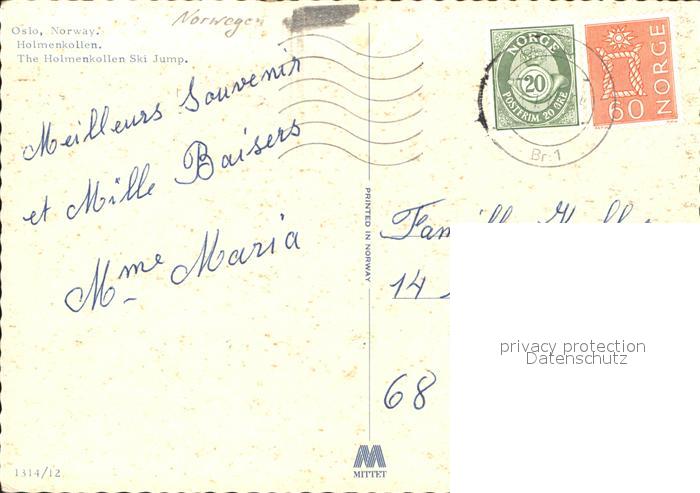 Norwegen
Oslo, Norway.
Holmenkollen.
The Holmenkollen Ski Jump.
Meilleurs Souvenir
et Mille Baisers
Mme Maria
PRINTED IN NORWAY
NORGE
20
POSTFRIM 20 ØRE
60 NORGE
Br. 1
14
68
privacy protection
Datenschutz
1314/12
MITTET